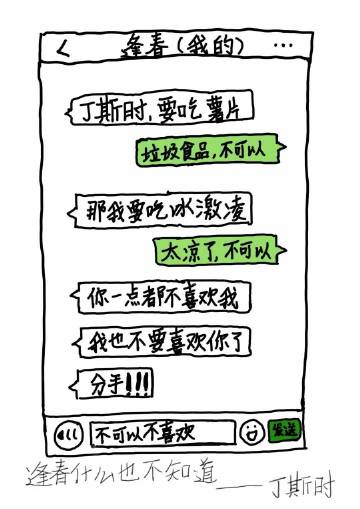 逢春(我的) ...
丁斯时,要吃薯片
垃圾食品,不可以
那我要吃冰激凌
太凉了,不可以
你一点都不喜欢我
我也不要喜欢你了
分手!!!
不可以不喜欢 发送
逢春什么也不知道——丁斯时